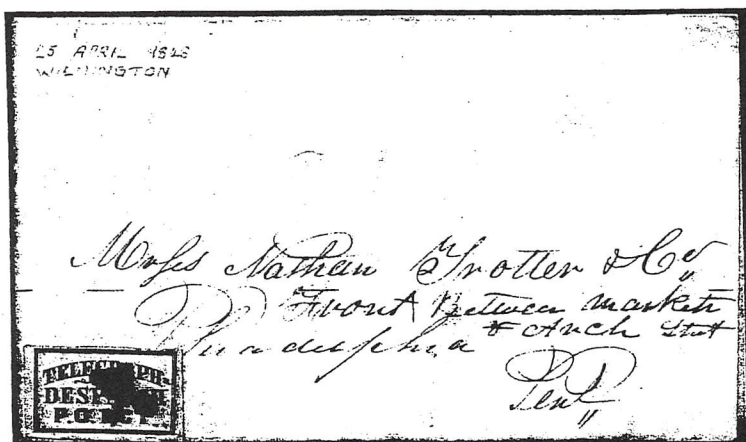 25 APRIL 1848
WILMINGTON
Messrs Nathan Trotter & Co
Front Between Market
& Arch Street
Philadelphia
Penn
TELEGRAPH-
DESPATCH
P.O.